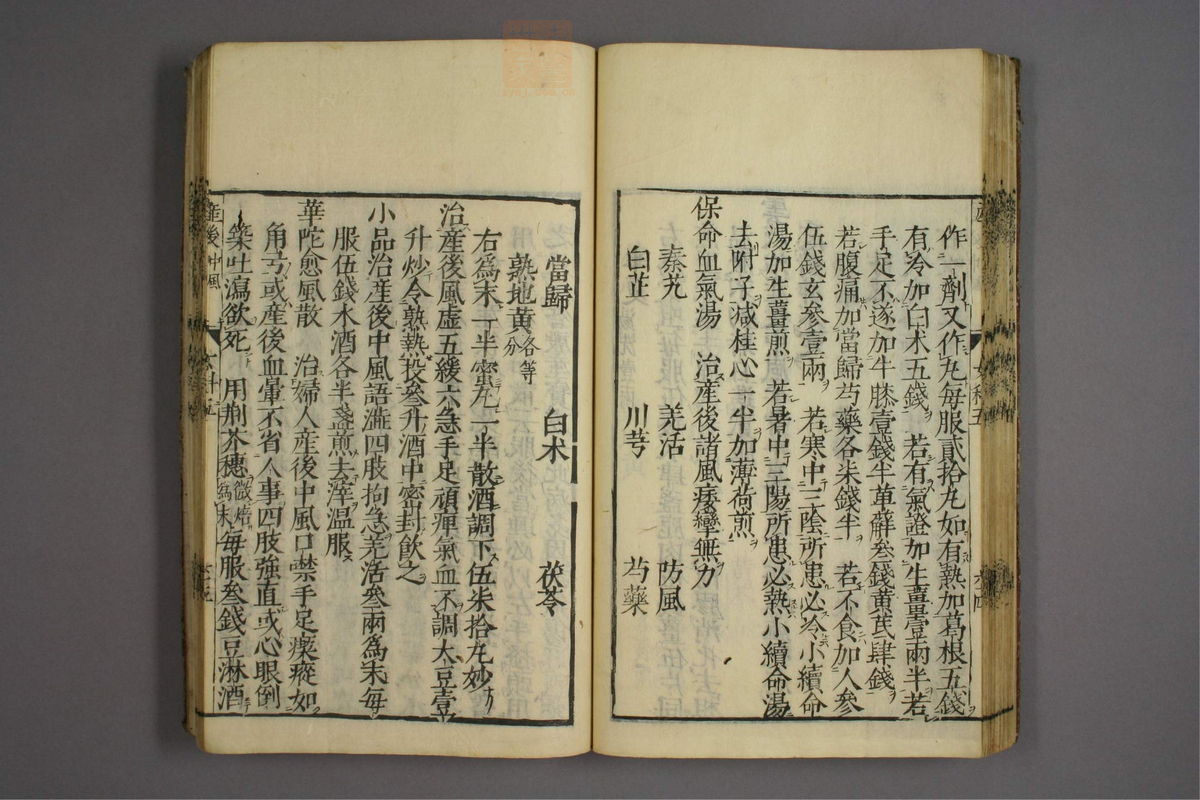 作一劑又作丸每服貳拾丸如有熱加葛根五錢
有冷加白朮五錢　若有氣證加生薑壹兩半若
手足不遂加牛膝壹錢半萆薢叄錢黃芪肆錢
若腹痛加當歸芍藥各柒錢半　若不食加人參
伍錢玄參壹兩　若寒中三陰所患必冷小續命
湯加生薑煎　若暑中三陽所患必熱小續命湯
去附子減桂心一半加薄荷煎
保命血氣湯　治產後諸風痿攣無力
秦艽　羌活　防風
白芷　川芎　芍藥
當歸　白朮　茯苓
熟地黃各等分
右爲末一半蜜丸一半散酒調下伍柒拾丸妙
治產後風虛五緩六急手足頑痺氣血不調大豆壹
升炒令熟熱投叄升酒中密封飲之
小品治產後中風語澁四肢拘急羌活叄兩爲末每
服伍錢水酒各半盞煎去滓溫服
華陀愈風散　治婦人產後中風口噤手足瘈瘲如
角弓或產後血暈不省人事四肢強直或心眼倒
築吐瀉欲死　用荆芥穗微焙爲末每服叄錢豆淋酒
產後中風
女科五